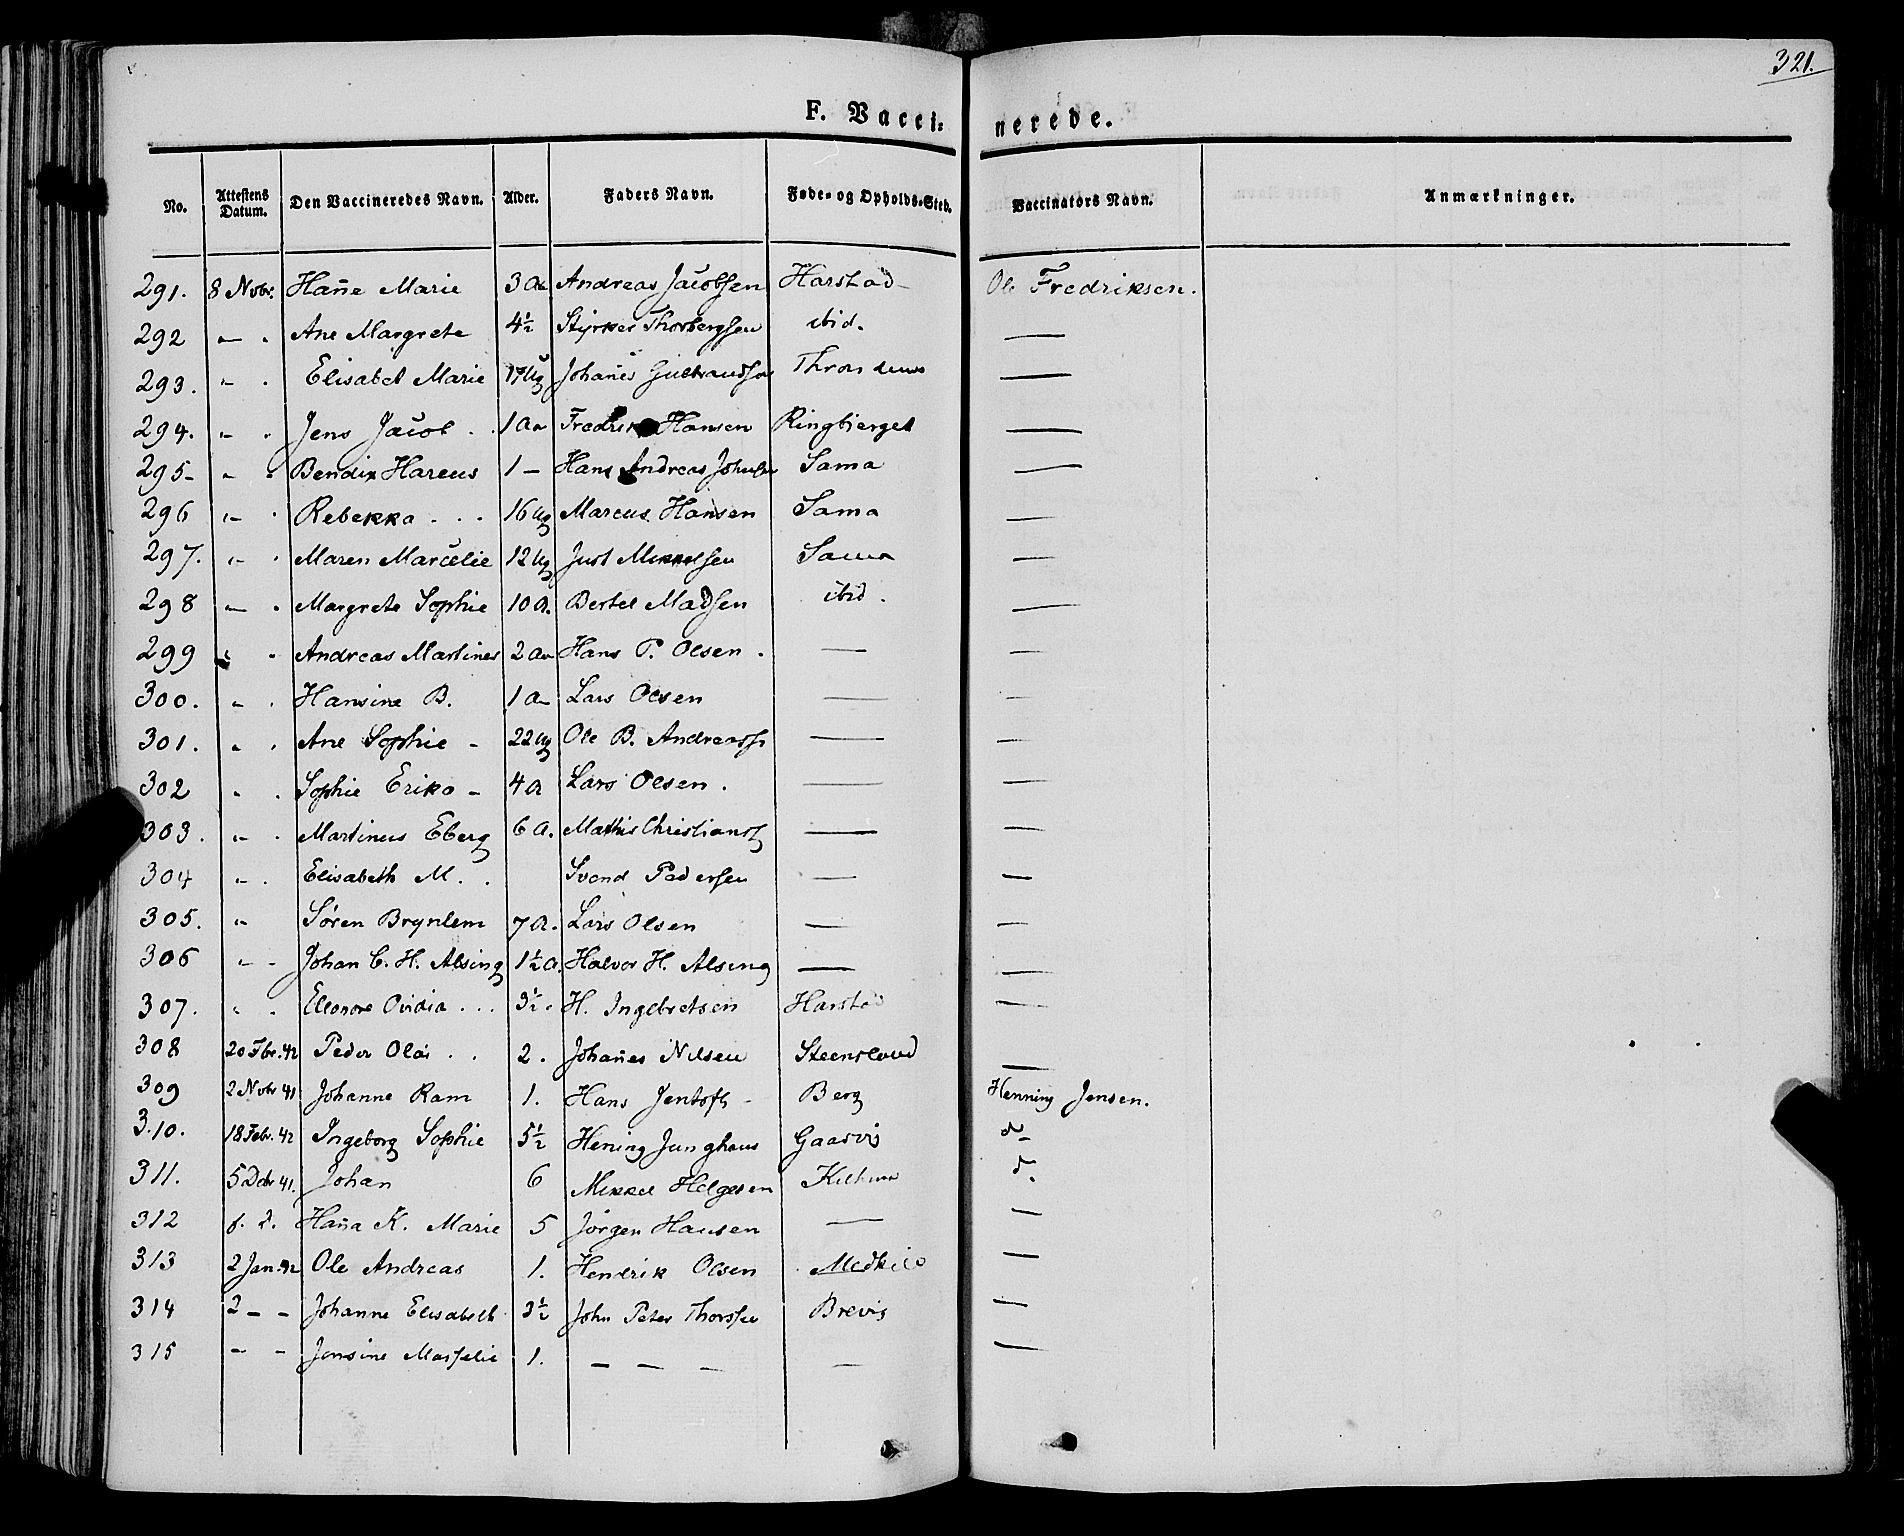 321.
F. Vacci-nerede.
No. Attestens Datum. Den Vaccineredes Navn. Alder. Faders Navn. Føde- og Opholds-Sted. Vaccinators Navn. Anmærkninger.
291. 8 Nobr. Hañe Marie 3 a Andreas Jacobsen Harstad Ole Fredriksen.
292 " Ane Margrete 4½ Styrker Thorbergsen ibid. —
293. " Elisabet Marie 17 Ug Johañes —
294. " Jens Jacob 1 a Fredrik Hansen Ringbierget —
295 " Bendix Hareus 1 — Hans Andreas Johnsen Sama —
296 " Rebekka 16 Ug Marcus Hansen Sama —
297. " Maren Marcelie 12 Ug Just Mikkelsen Sama —
298 " Margrete Sophie 10 a. Bertel Madsen ibid. —
299 " Andreas Martines 2 a Hans P. Olsen. — —
300. " Hansine B. 1 a Lars Olsen — —
301. " Ane Sophie 22 Ug Ole B. Andreass — —
302 " Sophie Erika 4 a Lars Olsen. — —
303. " Martinus Eberg 6 a. Mathis Christians — —
304 " Elisabeth M. Svend Pedersen — —
305. " Søren Brynlem 7 a. Lars Olsen — —
306 " Johan C. H. Alsing 1½ a. Halvor H. Alsing — —
307. " Eleonore Ovidia 3½ H. Ingebretsen Harstad —
308 20 Fbr. 42 Peder Olai 2. Johañes Nilsen Steensland —
309 2 Nobr 41 Johanne Ram 1. Hans Jentoft Berg Henning Jensen.
310. 18 Febr. 42 Ingeborg Sophie 5½ Hening Junghans Gaarvig d
311. 5 Dcbr 41. Johan 6 Mikkel Helgesen d.
312 f. d. Haña K. Marie 5 Jørgen Hansen — —
313 2 Jan 42 Ole Andreas 1. Hendrik Olsen Medkile —
314 2 — — Johanne Elisabeth 3½ John Peter Thorssen Brevig —
315 — — Jensine Marselie 1. — — — — —